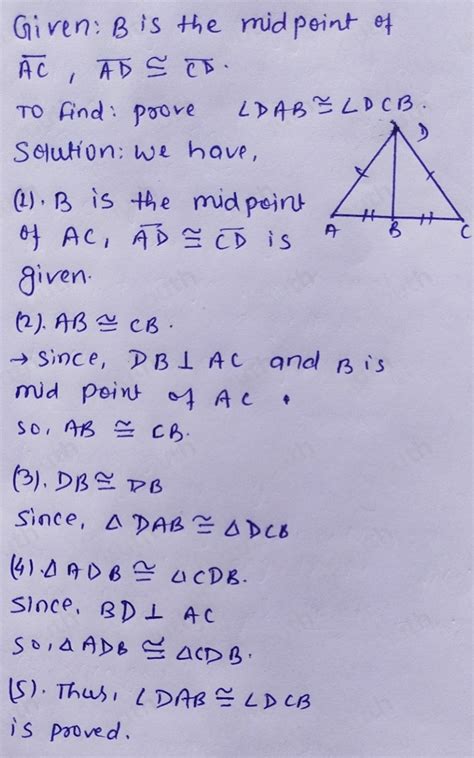 Given: B is the midpoint of
AC, AD ≅ CD.
To find: prove ∠DAB ≅ ∠DCB.
Solution: we have,
D
(1). B is the midpoint
of AC, AD ≅ CD is
A B C
given.
(2). AB ≅ CB.
→ since, DB ⊥ AC and B is
mid point of AC.
so, AB ≅ CB.
(3). DB ≅ DB
since, △DAB ≅ △DCB
(4). △ADB ≅ △CDB.
since, BD ⊥ AC
so, △ADB ≅ △CDB.
(5). Thus, ∠DAB ≅ ∠DCB
is proved.